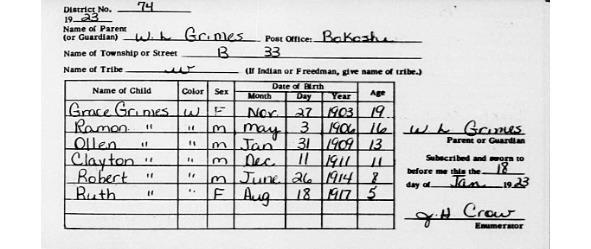 District No. 74
19 23
Name of Parent
(or Guardian) W. L Grimes Post Office: Bokoshe
Name of Township or Street B 33
Name of Tribe W (If Indian or Freedman, give name of tribe.)
Name of Child Color Sex Date of Birth Age
Month Day Year
Grace Grimes W F Nov 27 1903 19
Ramon " " m May 3 1906 16
Ollen " " m Jan 31 1909 13
Clayton " " m Dec 11 1911 11
Robert " " m June 26 1914 8
Ruth " " F Aug 18 1917 5
W L Grimes
Parent or Guardian
Subscribed and sworn to
before me this the 18
day of Jan 1923
J. H Crow
Enumerator